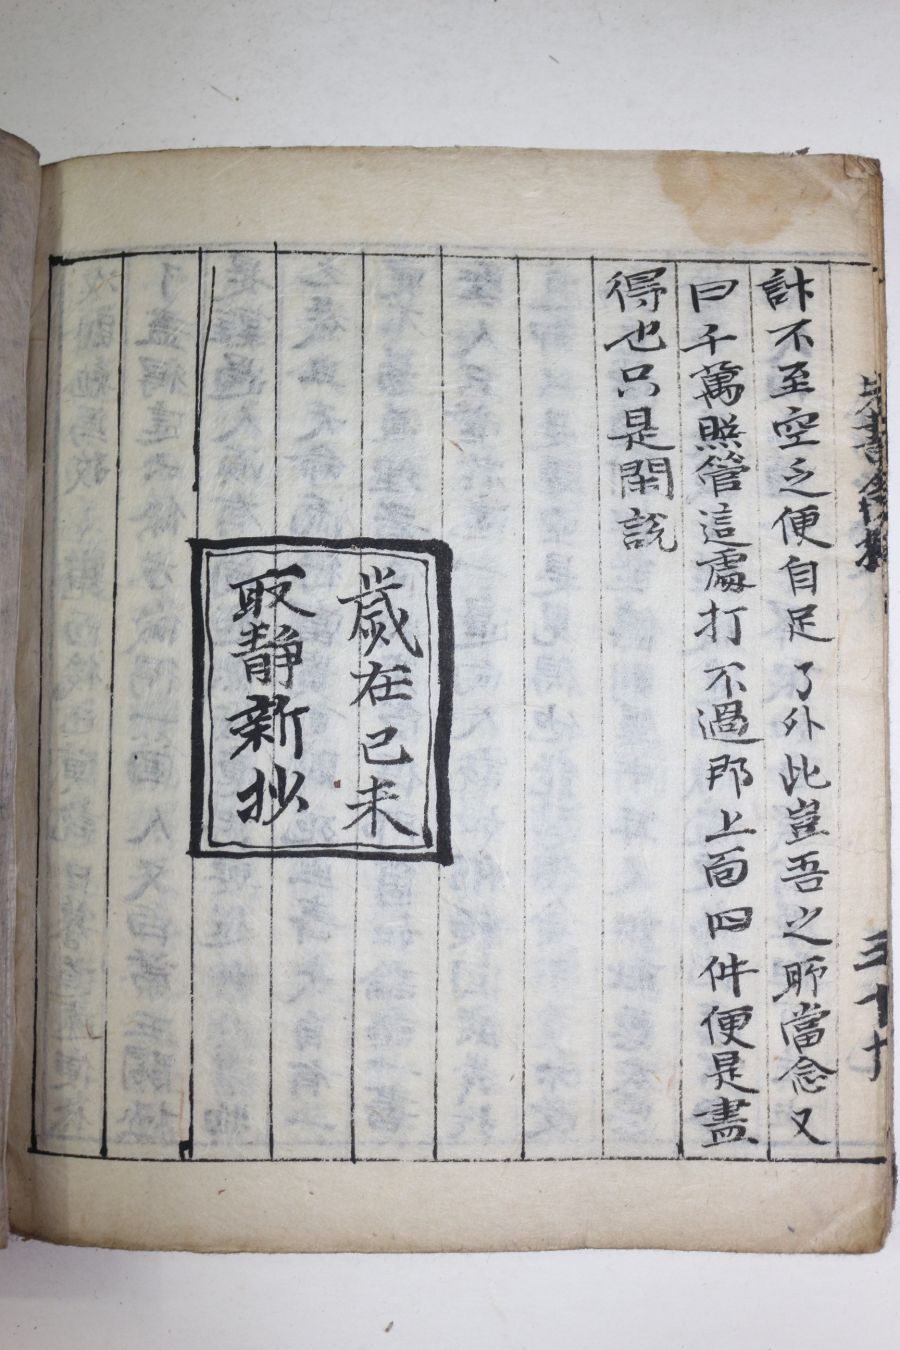 計不至空乏便自足了外此豈吾之所當念又
曰千萬照管這處打不過那上面四件便是盡
得也只是閑說
歲在己未
取靜新抄
三十七